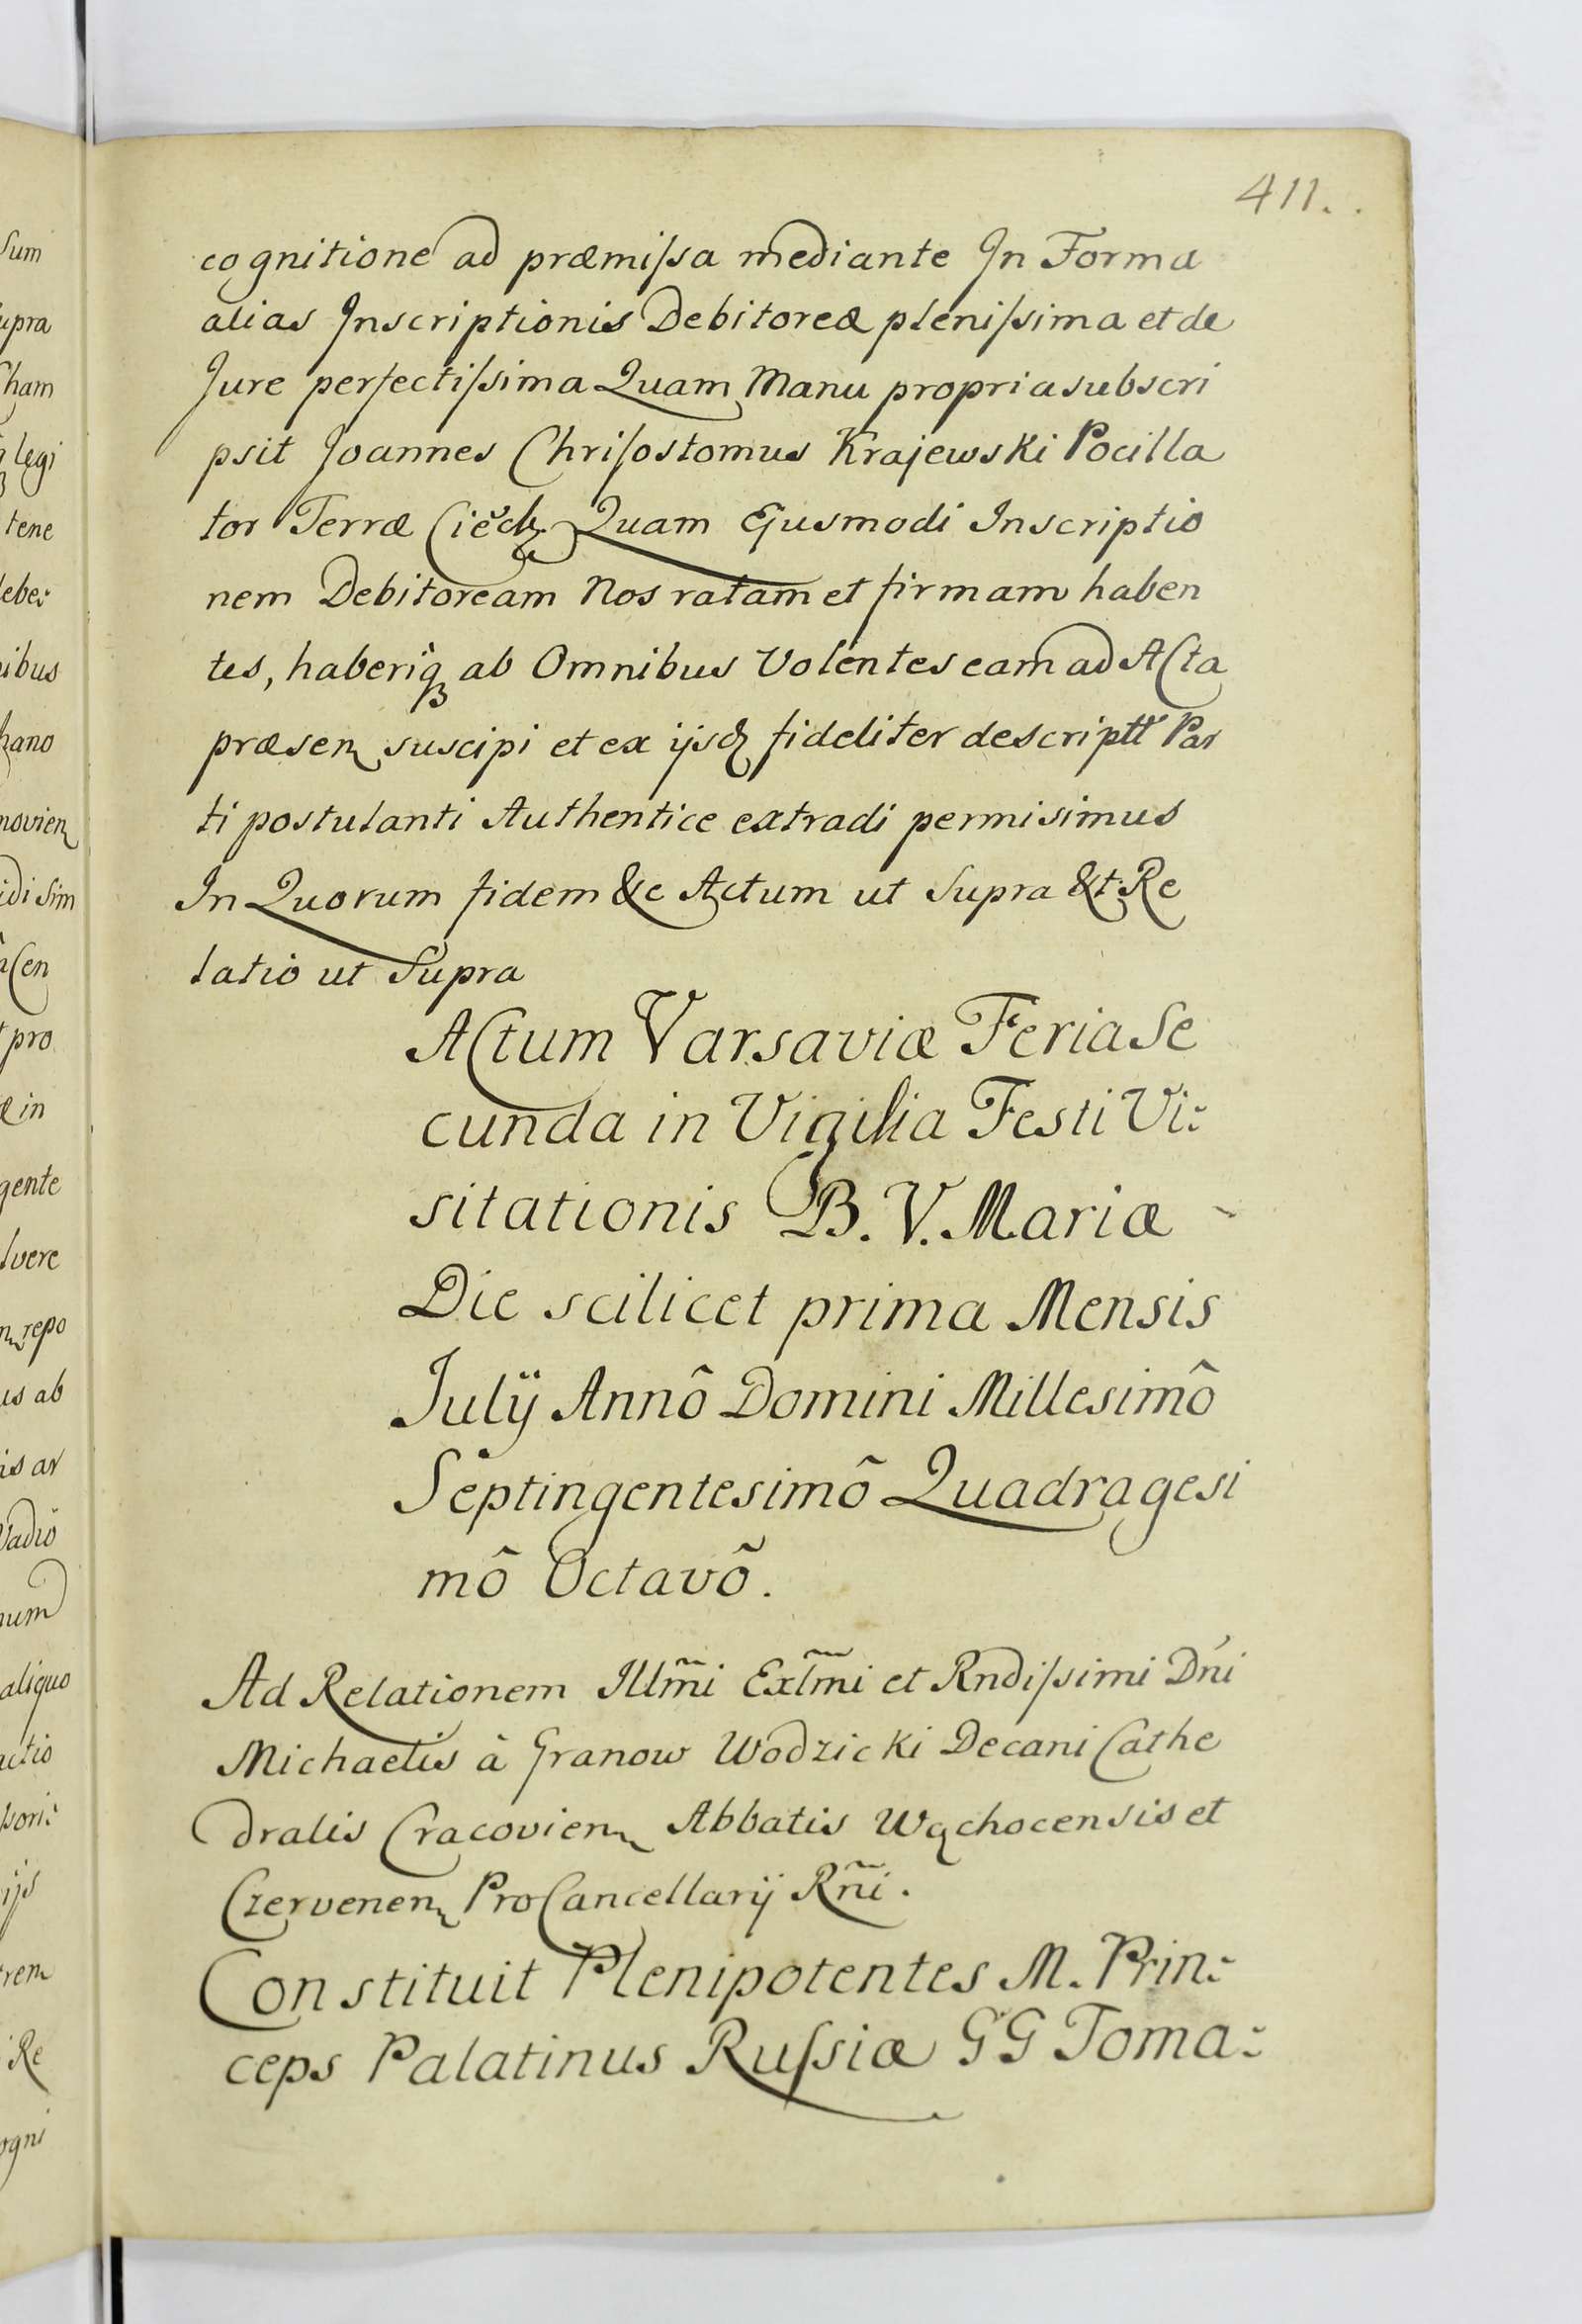 411.
cognitione ad præmiſsa mediante In Forma
alias Inscriptionis Debitoreæ pleniſsima et de
Jure perfectiſsima Quam Manu propria subscri
psit Joannes Chriſostomus Krajewski Pocilla
tor Terræ Ciech Quam Ejusmodi Inscriptio
nem Debitoream Nos ratam et firmam haben
tes, haberiq ab Omnibus Volentes eam ad Acta
præsen suscipi et ex ijsd fideliter descriptt Par
ti postulanti Authentice extradi permisimus
In Quorum fidem &c Actum ut Supra &t Re
latio ut Supra
Actum Varsaviæ Feria Se
cunda in Vigilia Festi Vi:
sitationis B. V. Mariæ
Die scilicet prima Mensis
Julÿ Annô Domini Millesimô
Septingentesimô Quadragesi
mô Octavô.
Ad Relationem Illm̃i Exlm̃i et Rndiſsimi Dńi
Michaelis â Granow Wodzicki Decani Cathe
dralis Cracovien Abbatis Wąchocensis et
Czervenen ProCancellarij Rñi.
Constituit Plenipotentes M. Prin:
ceps Palatinus Ruſsiæ GG Toma:
sum
upra
Cham
legi
tene
debe:
ibus
novien
idi Sim
Cen
pro
æ in
gente
lvere
repo
us ab
is ar
Vadiô
num
aliquo
actio
rem
Re
ogni